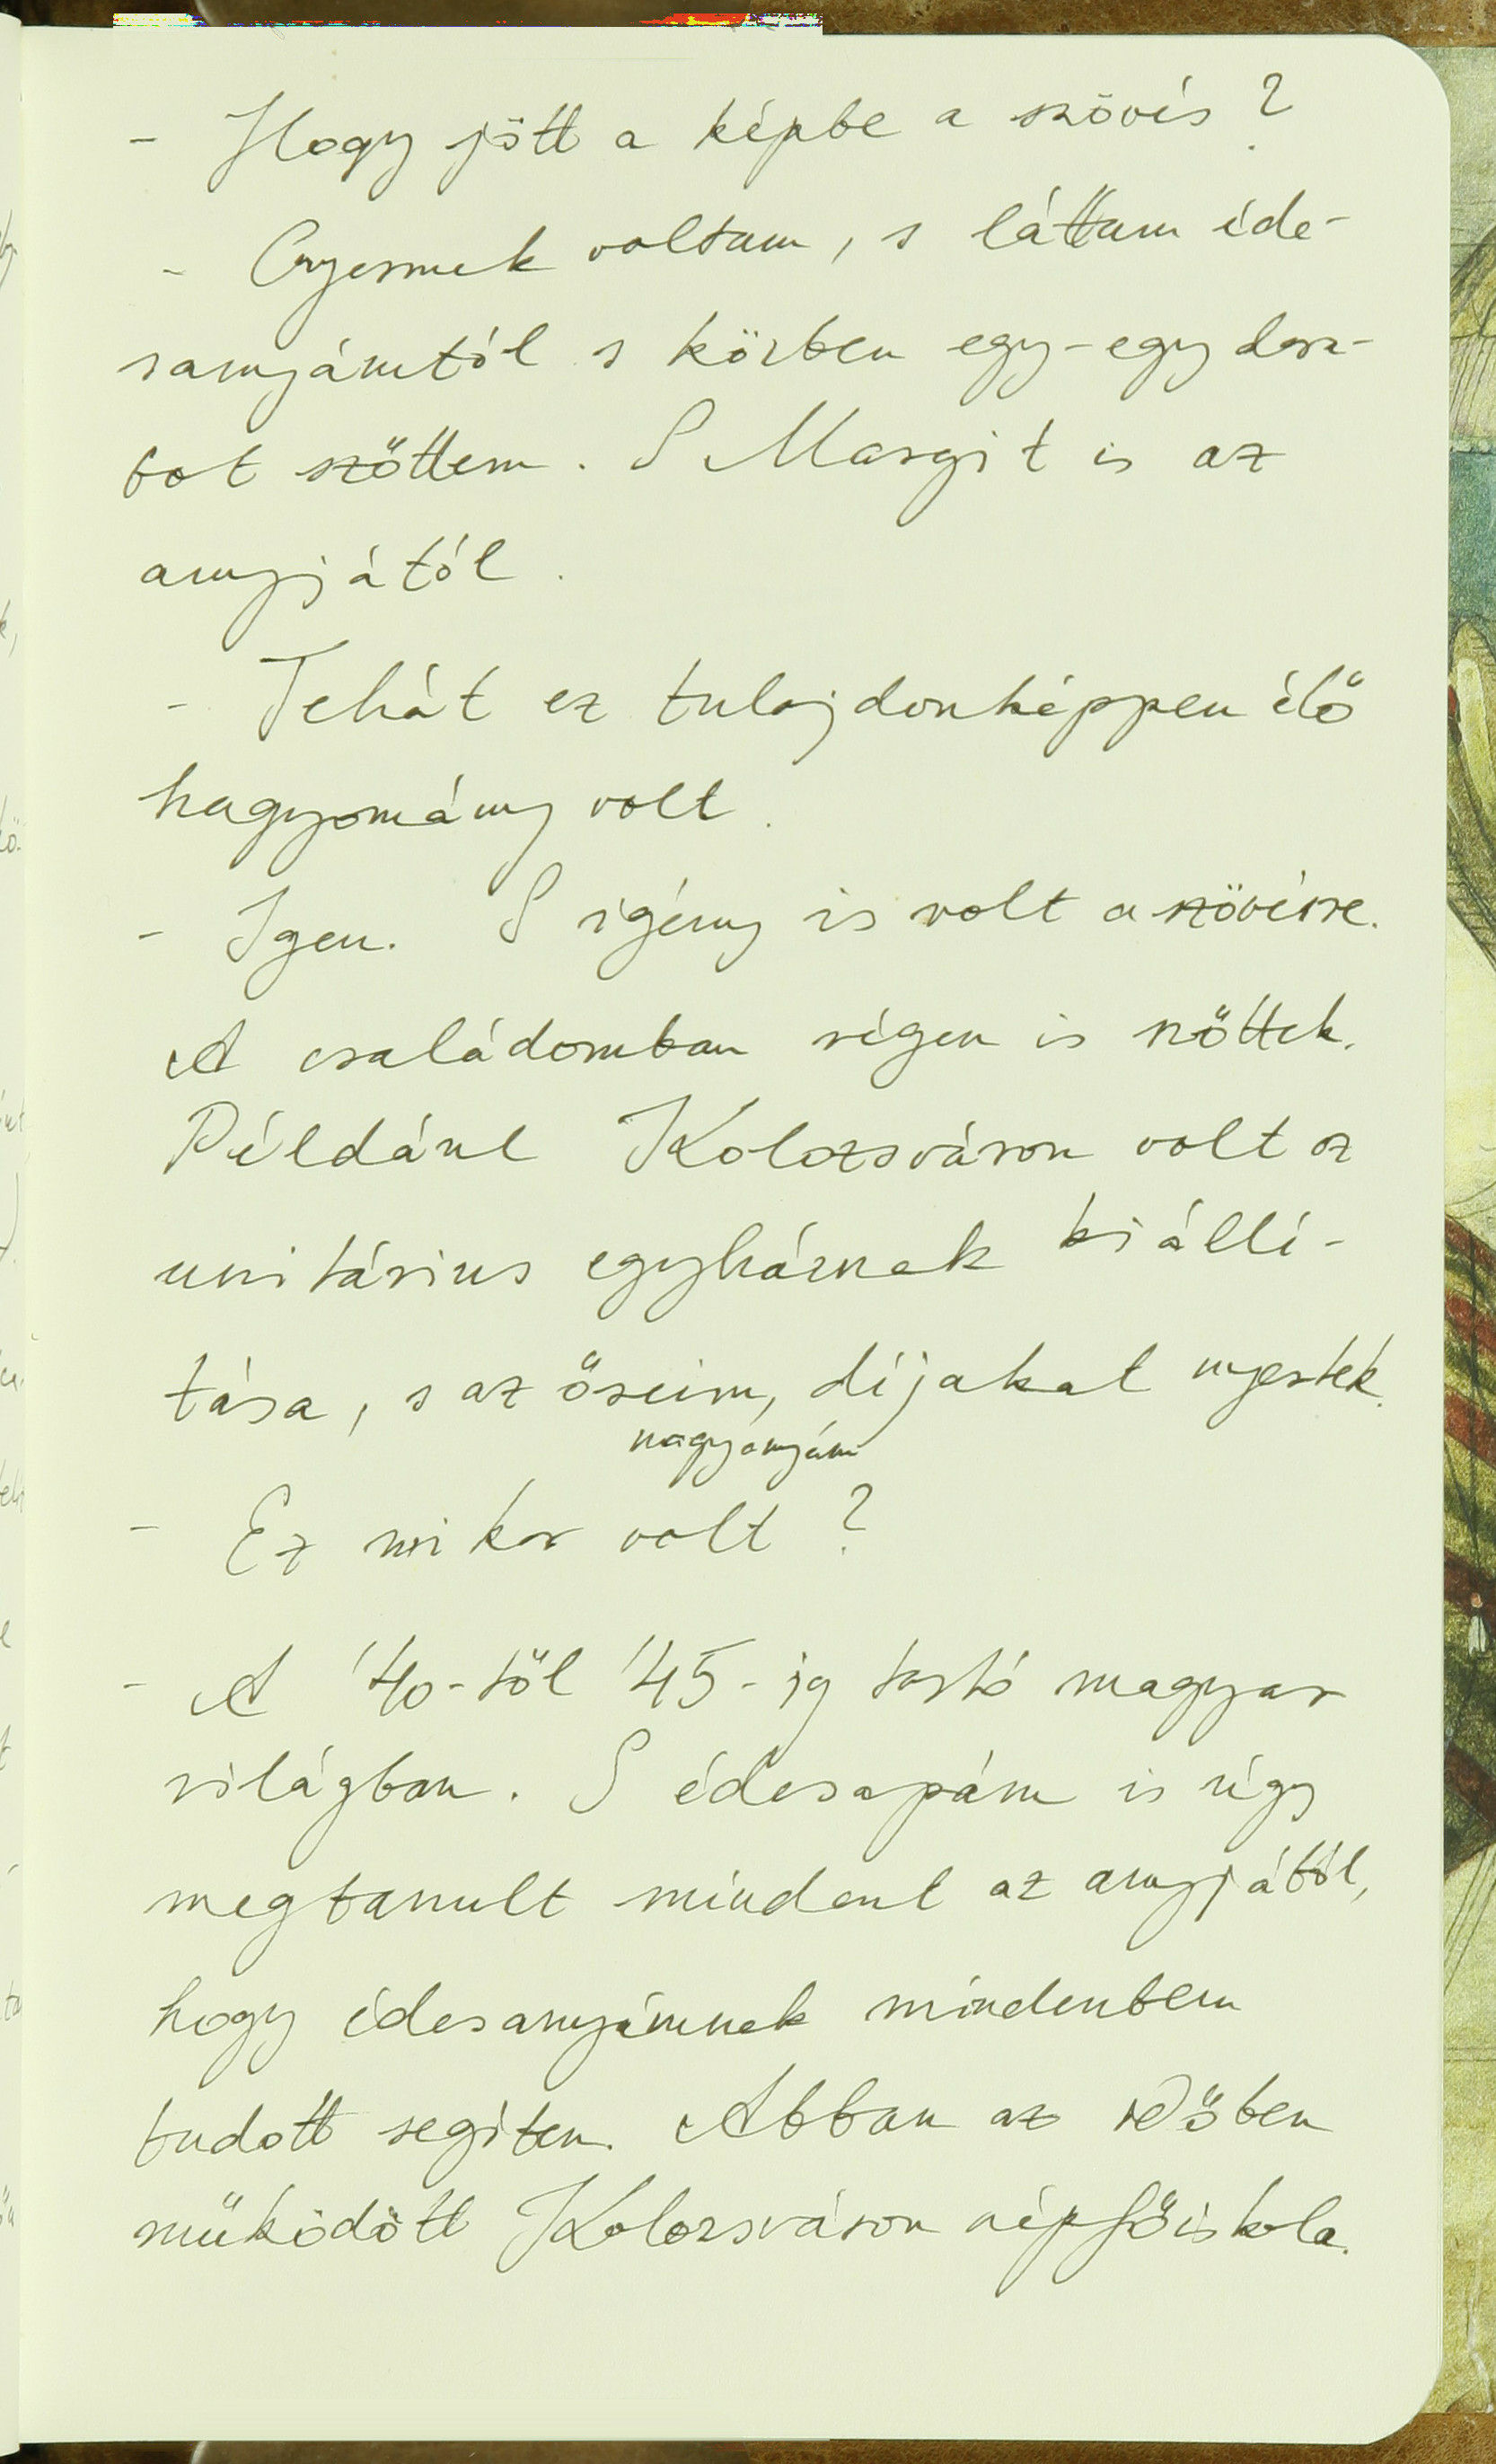 - Hogy jött a képbe a szövés?
- Gyermek voltam, s láttam éde-
sanyámtól s közben egy-egy dara-
bot szőttem. S Margit is az
anyjától.
- Tehát ez tulajdonképpen élő
hagyomány volt.
- Igen. S igény is volt a szövésre.
A családomban régen is szőttek.
Például Kolozsváron volt az
unitárius egyháznak kiállí-
tása, s az őseim, díjakat nyertek.
nagyanyám
- Ez mikor volt?
- A '40-től '45-ig tartó magyar
világban. S édesapám is úgy
megtanult mindent az anyjától,
hogy édesanyámnak mindenben
tudott segíten. Abban az időben
működött Kolozsváron népfőiskola.